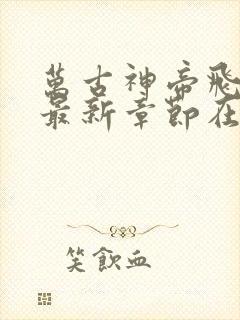 萬古神帝飛
最新章節在
笑飲血